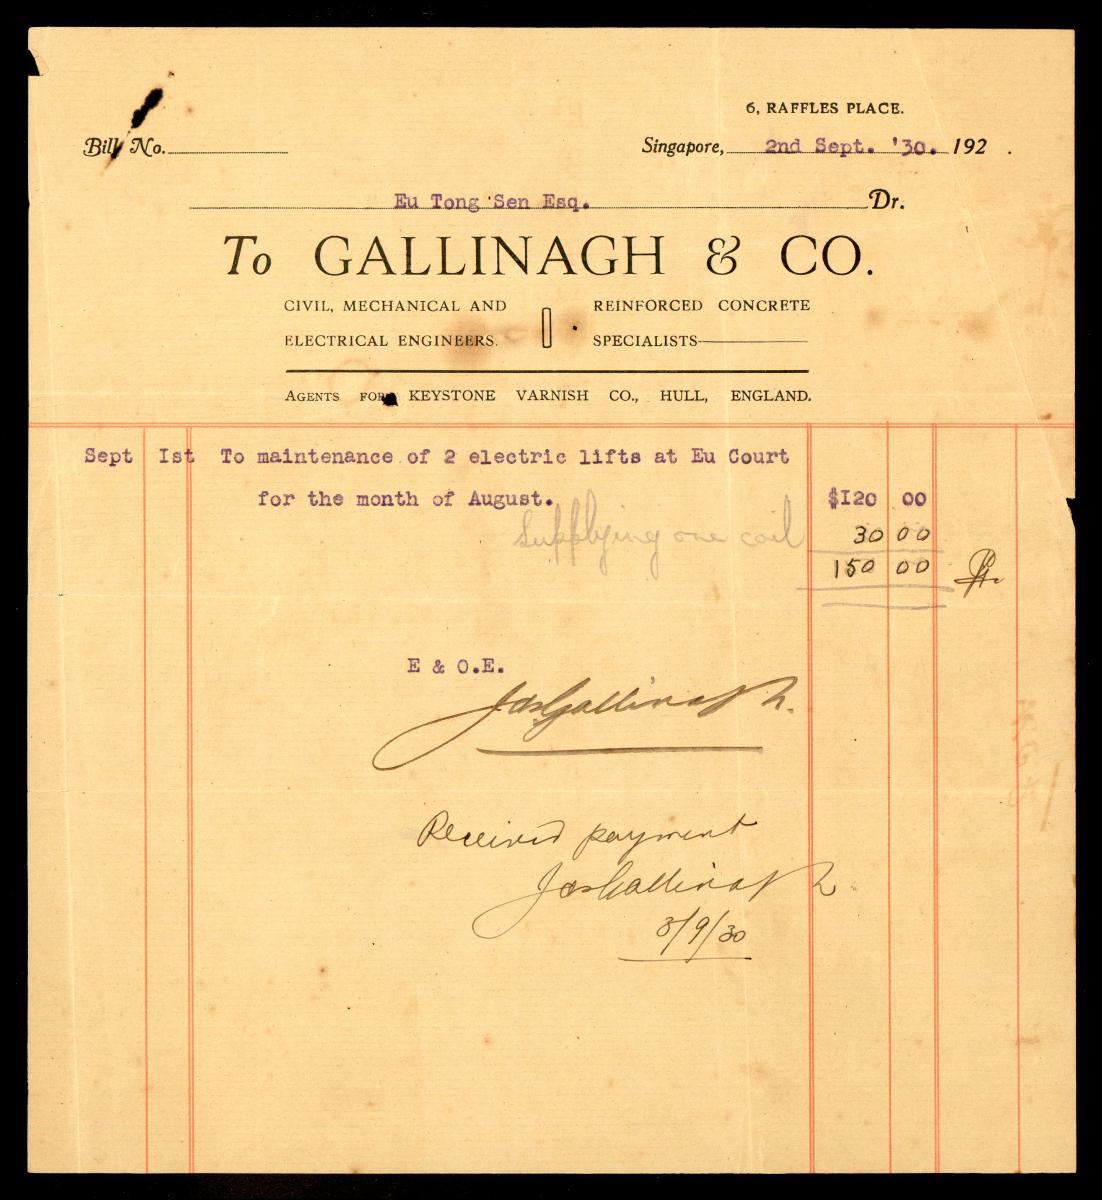 6, RAFFLES PLACE.
Bill No.
Singapore, 2nd Sept. '30. 192 .
Eu Tong Sen Esq. Dr.
To GALLINAGH & CO.
CIVIL, MECHANICAL AND REINFORCED CONCRETE
ELECTRICAL ENGINEERS. SPECIALISTS
AGENTS FOR KEYSTONE VARNISH CO., HULL, ENGLAND.
Sept Ist To maintenance of 2 electric lifts at Eu Court
for the month of August. $I20 00
Supplying one coil 30 00
150 00
E & O.E.
Jas Gallinagh.
Received payment
Jas Gallinagh
3/9/30